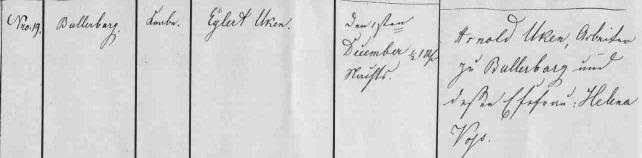 Nro. 19.
Bullerbarg.
Knabe.
Eylert Uken.
Den 1sten
December ½ 1 Uhr
Nachts.
Arnold Uken, Arbeiter
zu Bullerbarg und
deßen Ehefrau: Helena
Voß.